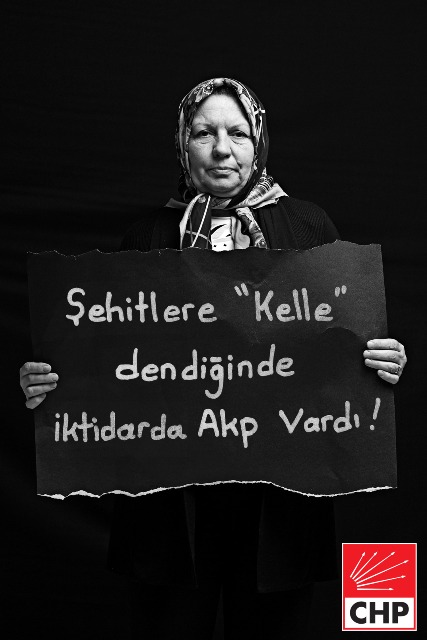 Şehitlere "Kelle"
dendiğinde
iktidarda Akp Vardı!
CHP